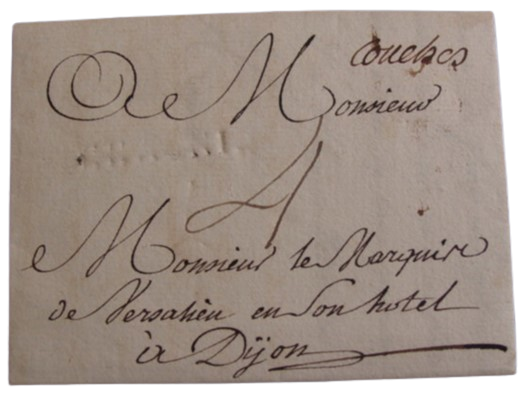 couches
A Monsieur
4
Monsieur le Marquise
de Versalieu en Son hotel
à Dijon